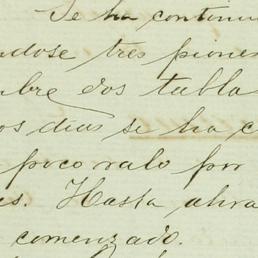 Se ha continu
ndose tres pione
bre dos tabla
os dias se ha c
poco ralo por
es. Hasta ahra
comenzado.